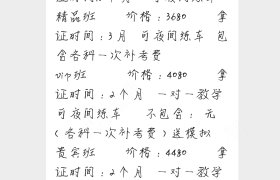 精品班 价格：3680 拿
证时间：3月 可夜间练车 包
含各科一次补考费
vip班 价格：4080 拿
证时间：2个月 一对一教学
可夜间练车 不包含： 元
（各科一次补考费）送模拟
贵宾班 价格：4480 拿
证时间：2个月 一对一教学